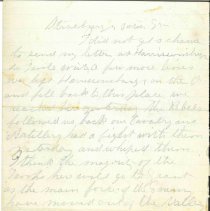 I did not get a chance
to send my letter at Harrisonburg
so I write a few more lines
we left Harrisonburg on the
and fell back to this place, we
yesterday the Rebels
followed us back our Cavalry and
Artillery had a fight with them
yesterday and whiped them.
I think the most of the
go to Grant
as the main force of the enemy
have moved out of the Valley